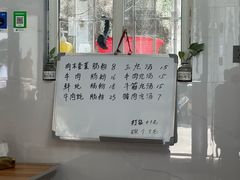 肉末青菜 肠粉 8
牛肉 肠粉 16
鲜虾 肠粉 18
牛肉虾 肠粉 23
三宝汤 15
牛肉丸汤 15
牛筋丸汤 15
猪肉丸汤 7
打包